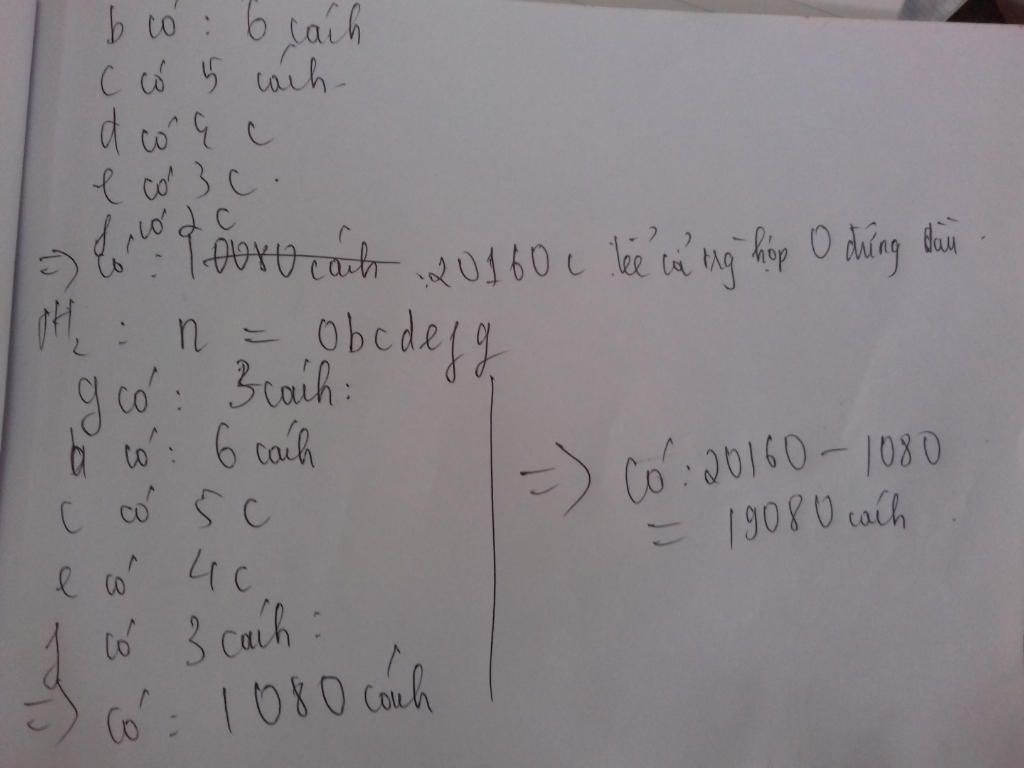 b có : 6 cách
c có 5 cách
d có 4 c
e có 3 c .
f có 2 c
=> có : 10080 cách . 20160 c kể cả trg hợp 0 đứng đầu .
TH2 : n = 0bcdefg
g có : 3 cách :
b có : 6 cách
c có 5 c
e có 4 c
f có 3 cách :
=> có : 1080 cách
=> có : 20160 - 1080
= 19080 cách .